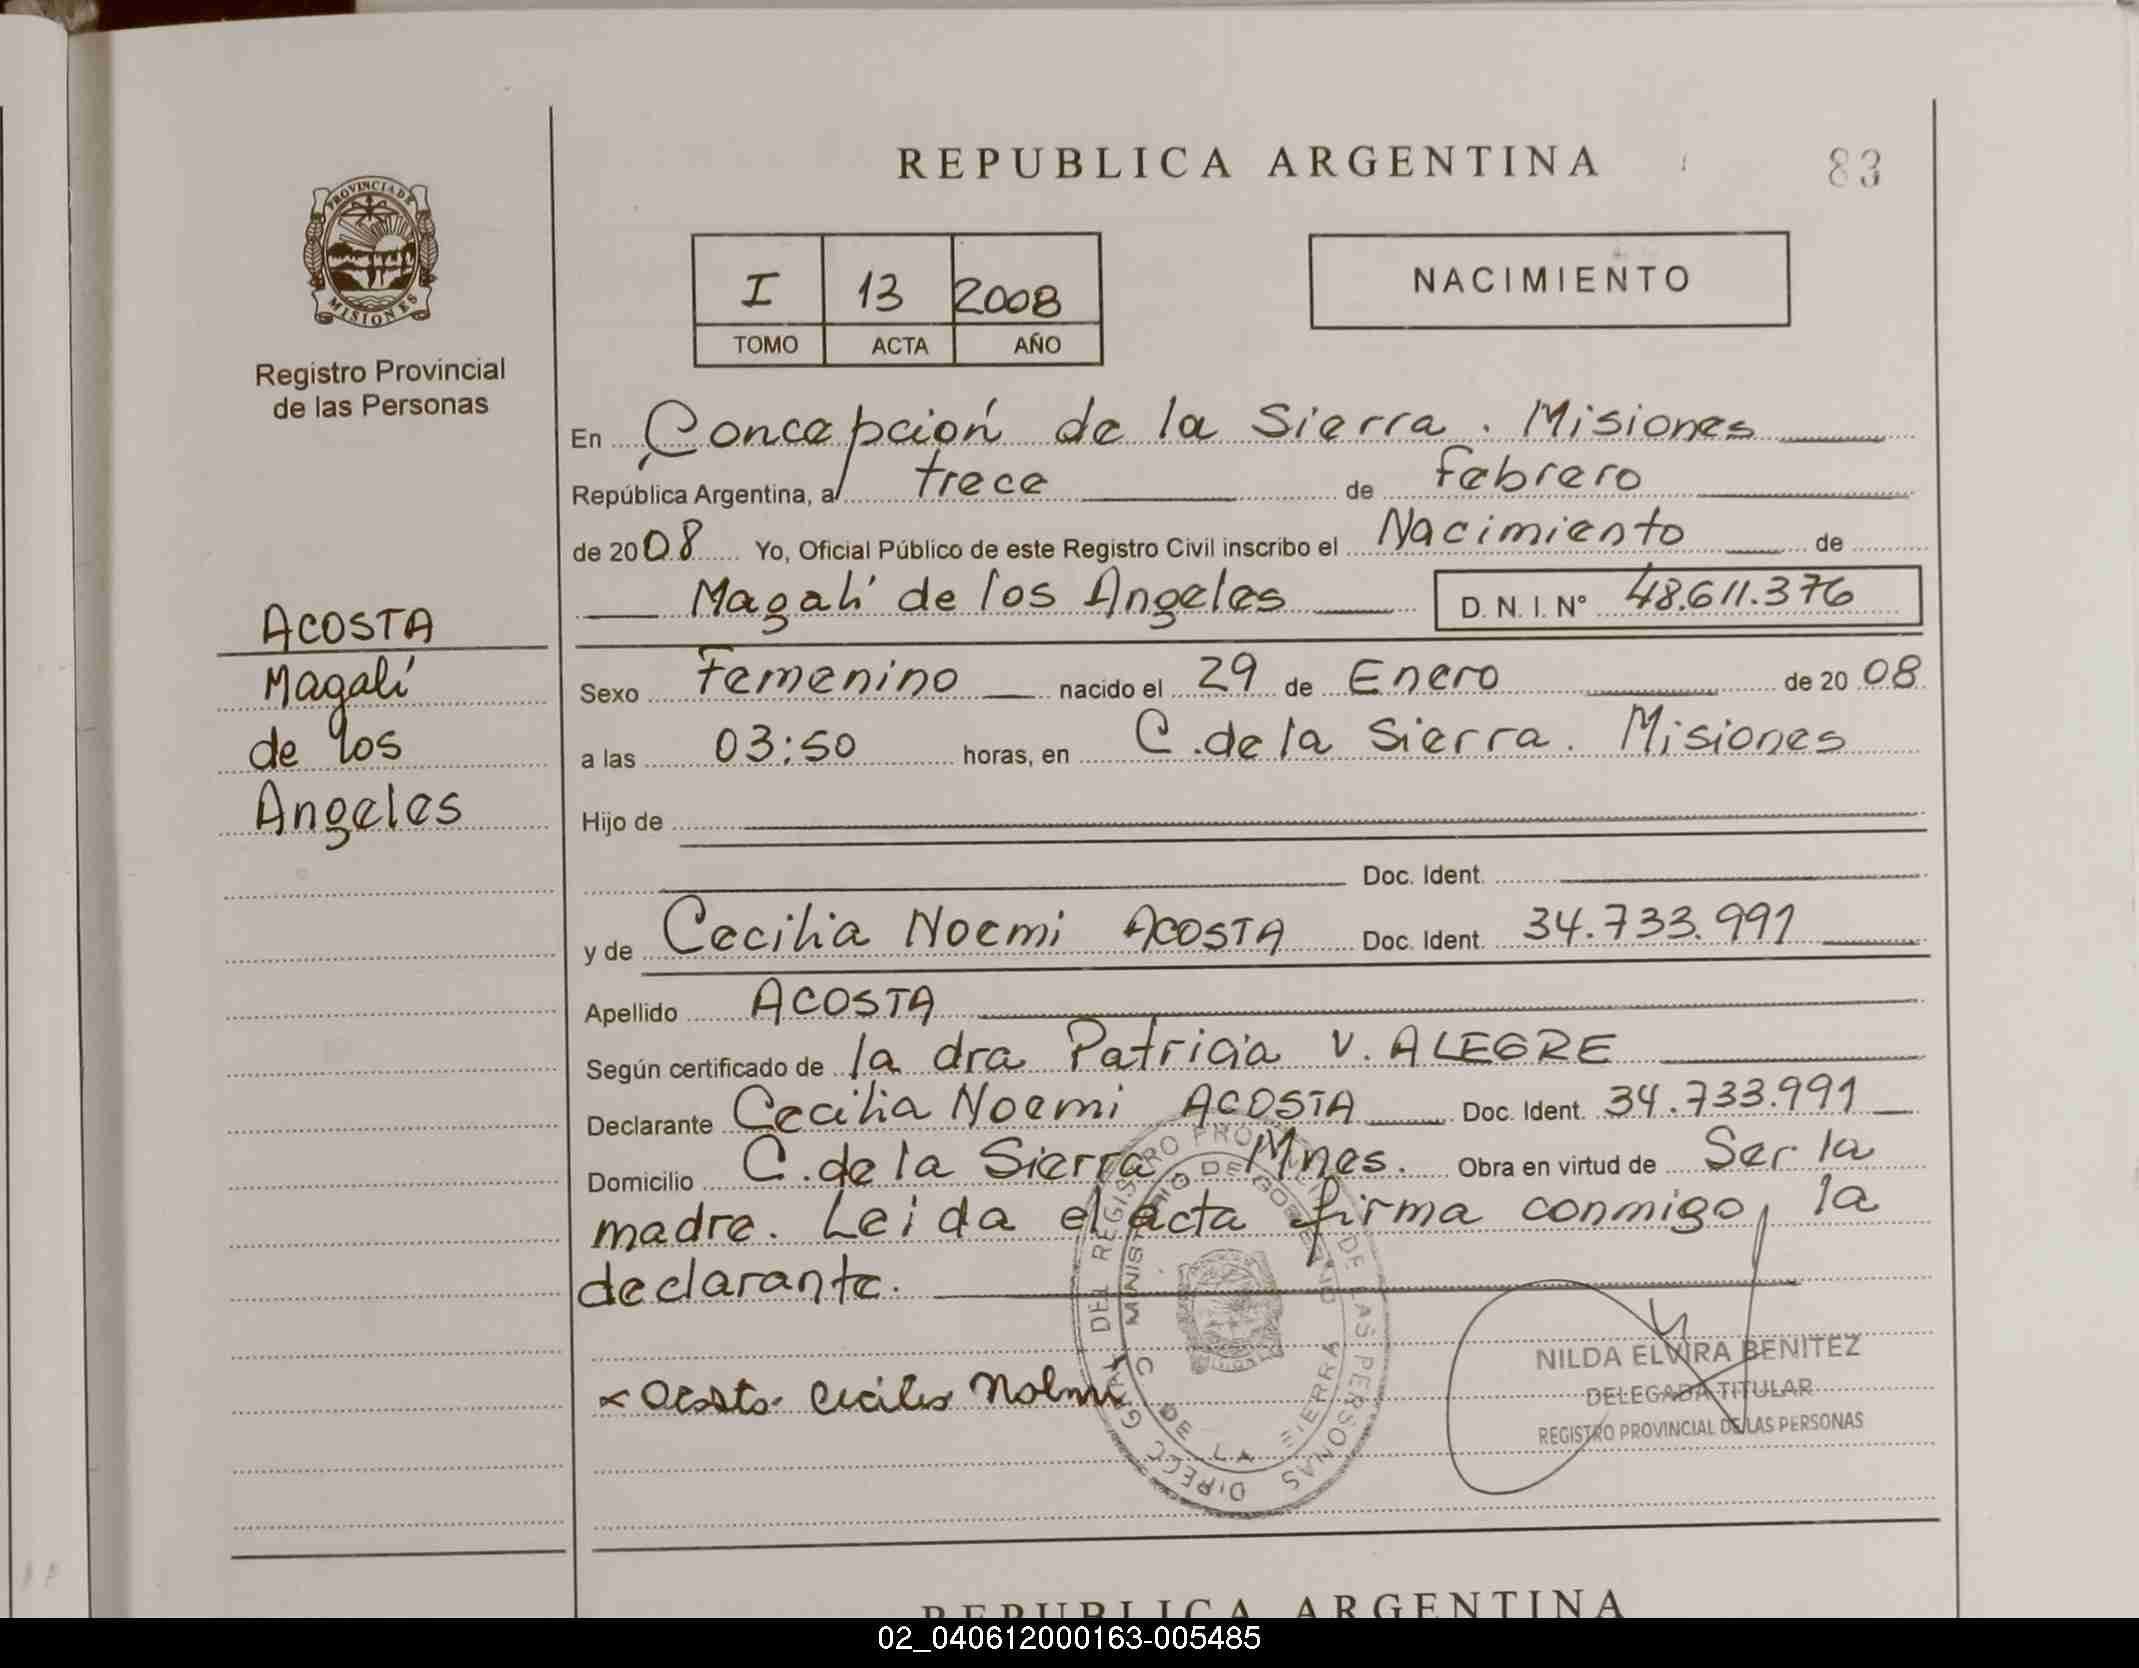 REPUBLICA ARGENTINA
83
PROVINCIA DE
MISIONES
Registro Provincial
de las Personas
I 13 2008
TOMO ACTA AÑO
NACIMIENTO
En Concepción de la Sierra. Misiones
República Argentina, a trece de febrero
de 2008 Yo, Oficial Público de este Registro Civil inscribo el Nacimiento de
Magalí de los Angeles D. N. I. N° 48.611.376
ACOSTA
Magalí
de los
Angeles
Sexo Femenino nacido el 29 de Enero de 2008
a las 03:50 horas, en C. de la Sierra. Misiones
Hijo de
Doc. Ident.
y de Cecilia Noemi ACOSTA Doc. Ident. 34.733.991
Apellido ACOSTA
Según certificado de la dra Patricia V. ALEGRE
Declarante Cecilia Noemi ACOSTA Doc. Ident. 34.733.991
Domicilio C. de la Sierra Mnes. Obra en virtud de Ser la
madre. Leida el acta firma conmigo, la
declarante.
Acosta Cecilia Noemi
DIRECC GRAL DEL REGISTRO PROVINCIAL DE LAS PERSONAS
MINISTERIO DE GOBIERNO
C DE LA SIERRA
NILDA ELVIRA BENITEZ
DELEGADA TITULAR
REGISTRO PROVINCIAL DE LAS PERSONAS
REPUBLICA ARGENTINA
02_040612000163-005485